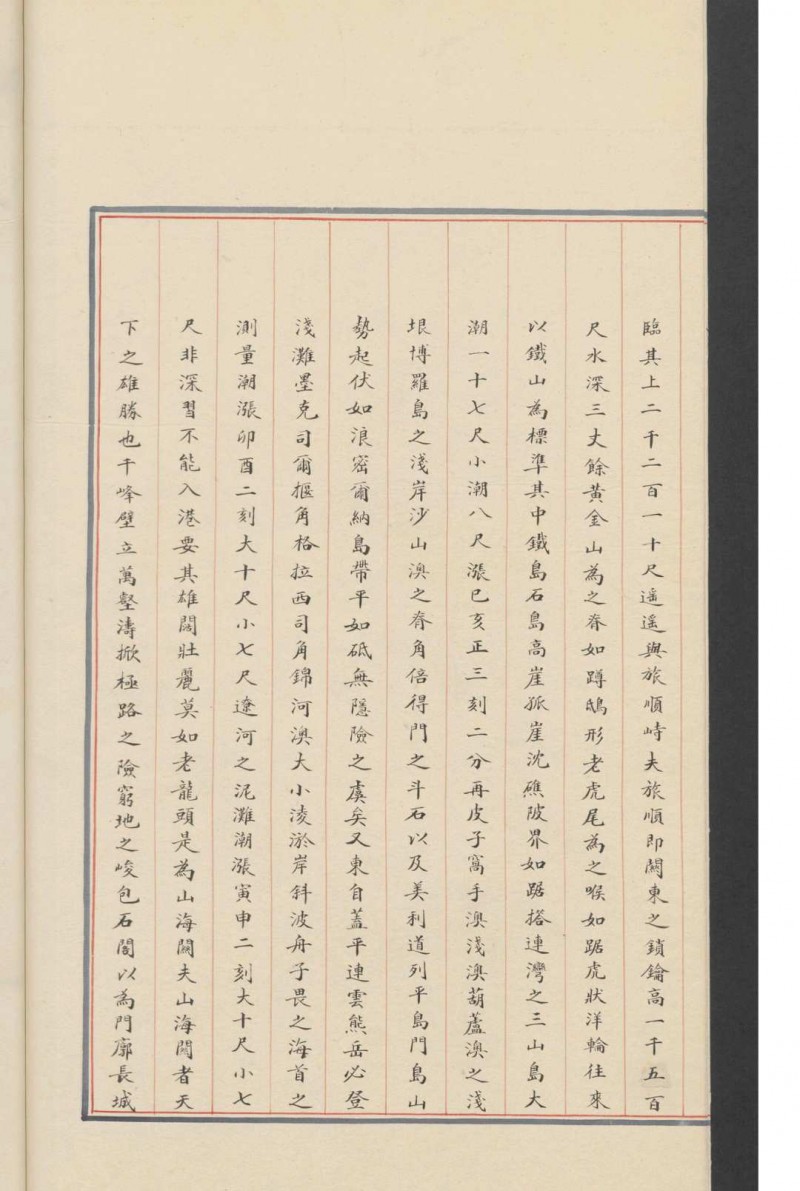 臨其上二千二百一十尺遥遥與旅順峙夫旅順即關東之鎖鑰高一千五百
尺水深三丈餘黃金山為之脊如蹲鴟形老虎尾為之喉如踞虎狀洋輪往來
以鐵山為標準其中鐵島石島高崖孤崖沈礁陂界如踞搭連灣之三山島大
潮一十七尺小潮八尺漲巳亥正三刻二分再皮子窩手澳淺澳葫蘆澳之淺
垠博羅島之淺岸沙山澳之脊角倍得門之斗石以及美利道列平島門島山
勢起伏如浪密爾納島帶平如砥無隱險之虞矣又東自蓋平連雲熊岳必登
淺灘墨克司爾摳角格拉西司角錦河澳大小淩淤岸斜波舟子畏之海首之
測量潮漲卯酉二刻大十尺小七尺遼河之泥灘潮漲寅申二刻大十尺小七
尺非深習不能入港要其雄闊壯麗莫如老龍頭是為山海關夫山海關者天
下之雄勝也千峰壁立萬壑濤掀極路之險窮地之峻包石閭以為門廓長城